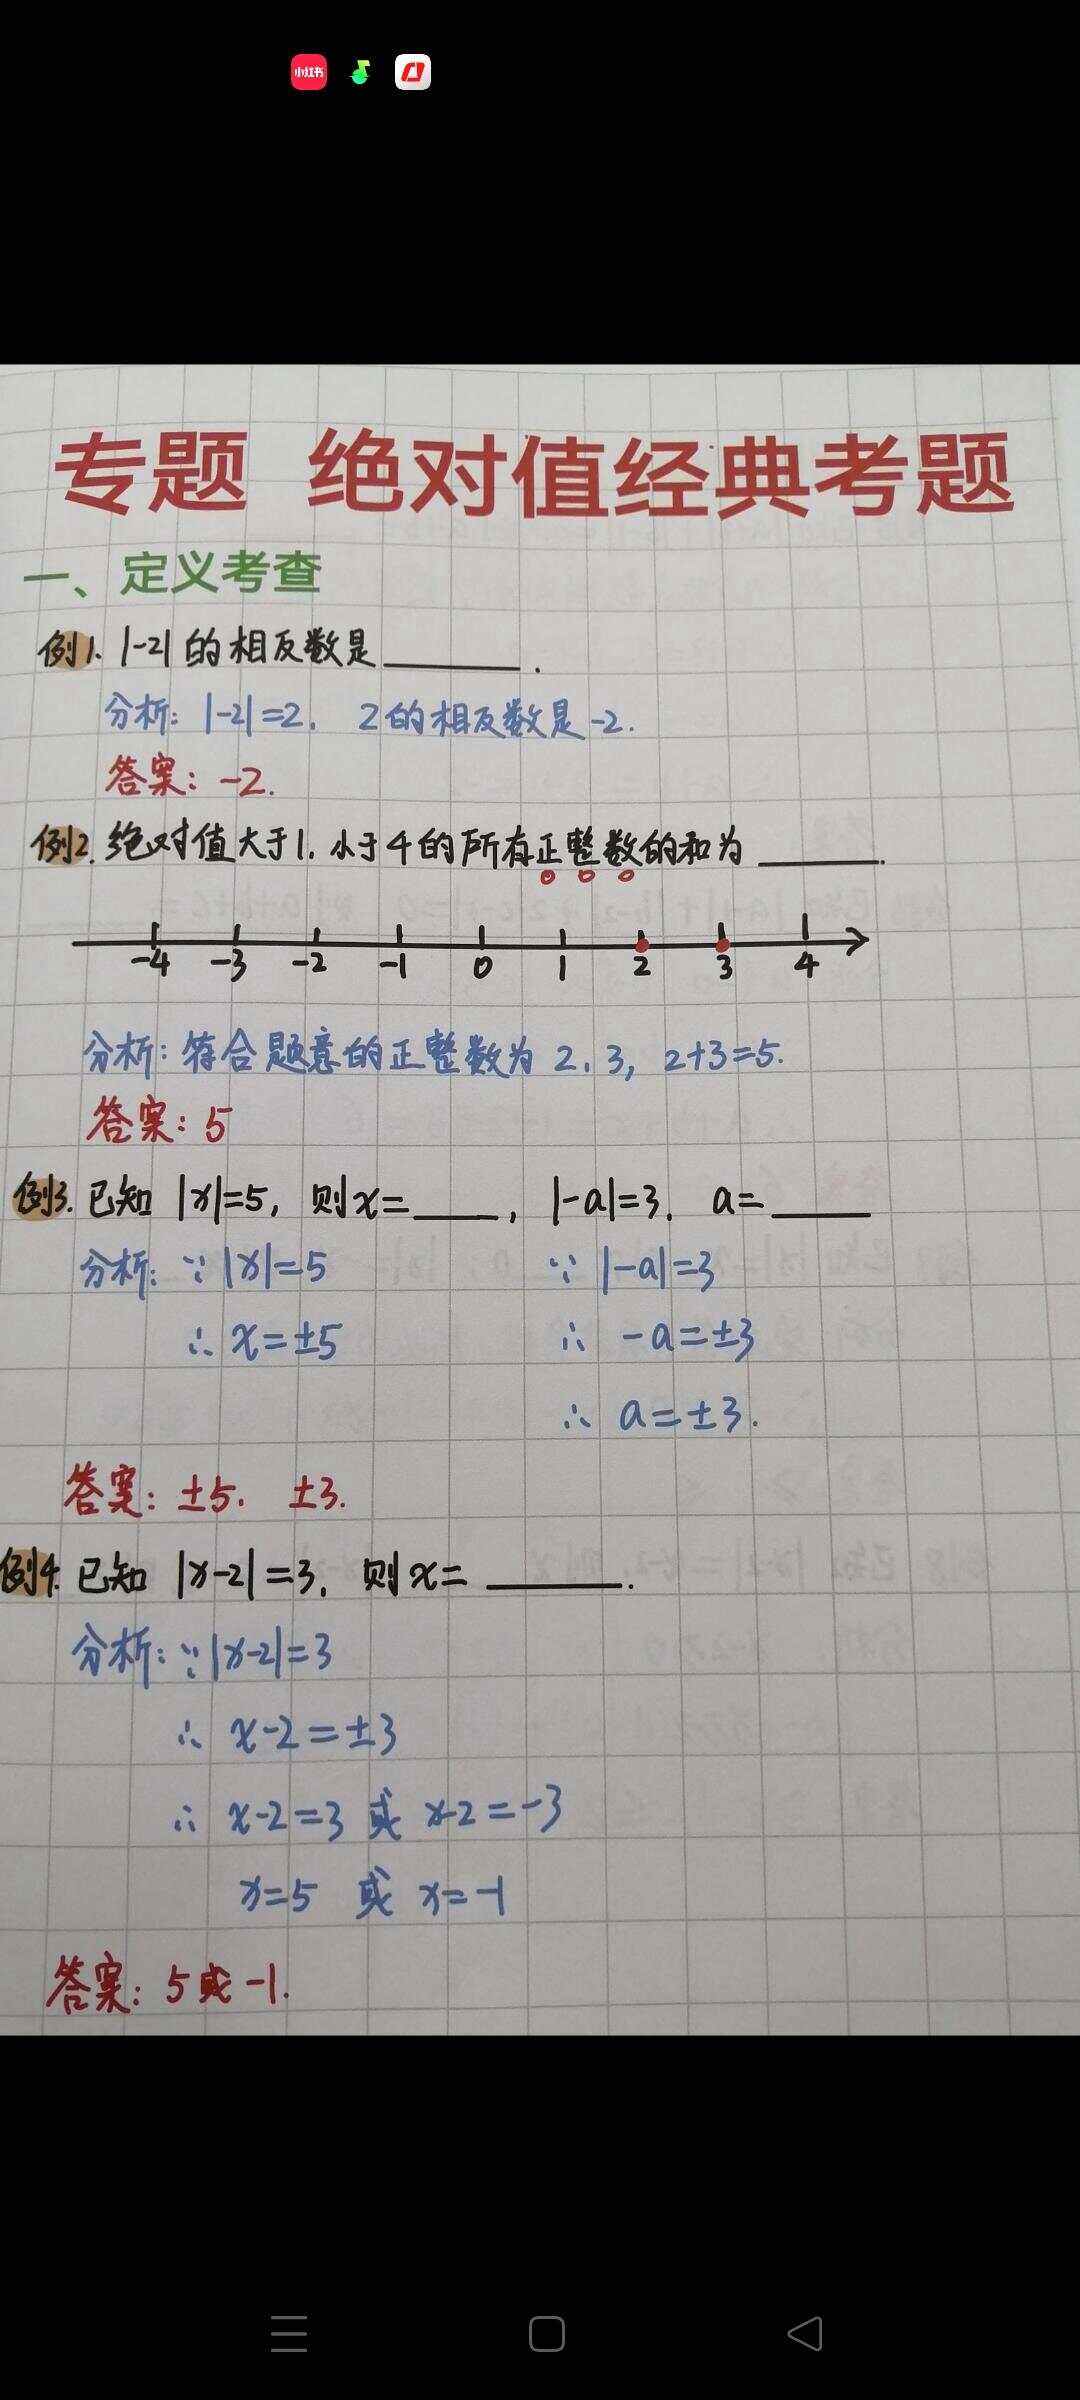 小红书
专题 绝对值经典考题
一、定义考查
例1. |-2| 的相反数是______.
分析: |-2|=2. 2的相反数是-2.
答案: -2.
例2. 绝对值大于1. 小于4的所有正整数的和为______.
-4 -3 -2 -1 0 1 2 3 4
分析: 符合题意的正整数为 2. 3, 2+3=5.
答案: 5
例3. 已知 |x|=5, 则x=____, |-a|=3. a=____
分析: ∵ |x|=5 ∵ |-a|=3
∴ x=±5 ∴ -a=±3
∴ a=±3.
答案: ±5. ±3.
例4. 已知 |x-2|=3. 则x=______.
分析: ∵ |x-2|=3
∴ x-2=±3
∴ x-2=3 或 x-2=-3
x=5 或 x=-1
答案: 5或-1.